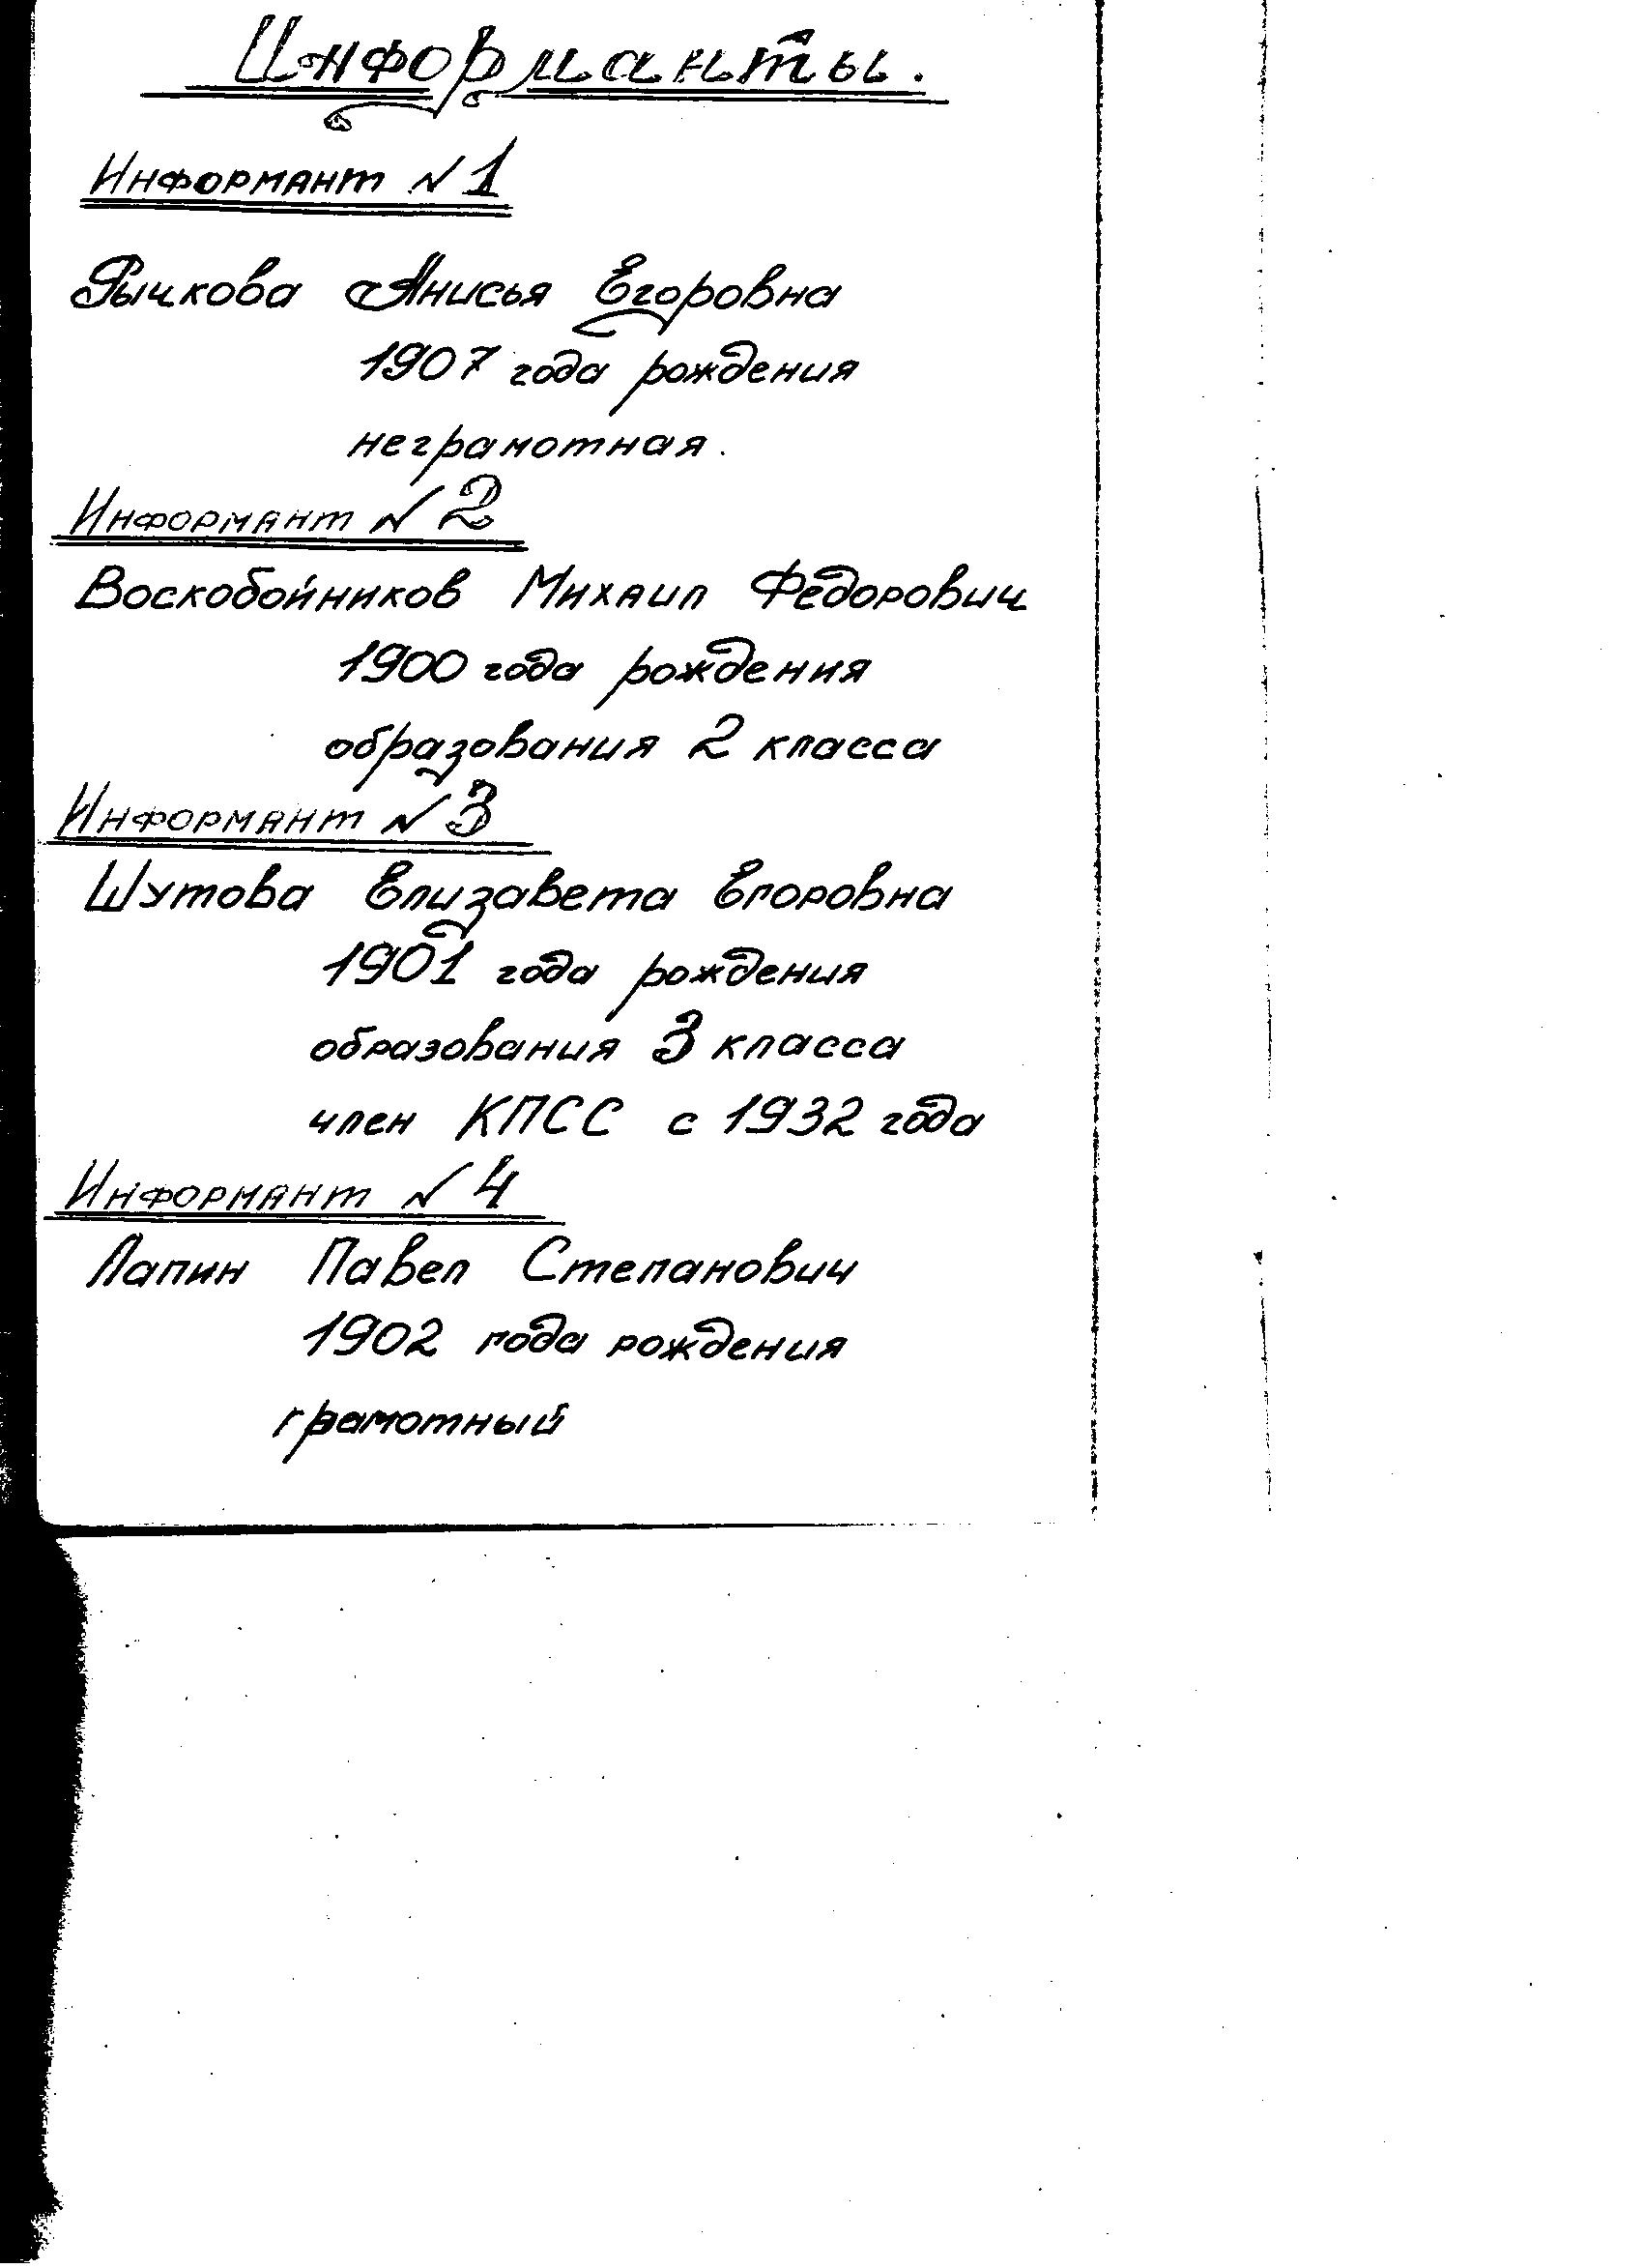 Информанты.
Информант №1
Рычкова Анисья Егоровна
1907 года рождения
неграмотная.
Информант №2
Воскобойников Михаил Федорович
1900 года рождения
образования 2 класса
Информант №3
Шутова Елизавета Егоровна
1901 года рождения
образования 3 класса
член КПСС с 1932 года
Информант №4
Лапин Павел Степанович
1902 года рождения
грамотный